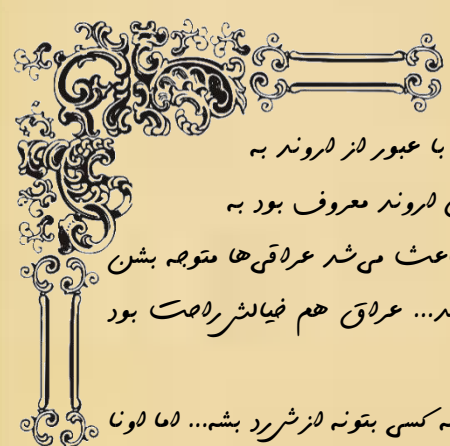 با عبور از اروند به
اروند معروف بود به
می‌شد عراقی‌ها متوجه بشن
... عراق هم خیالش راحت بود
کسی بتونه ازش رد بشه... اما اونا